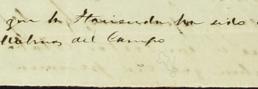 que la Hacienda ha sido
del Campo